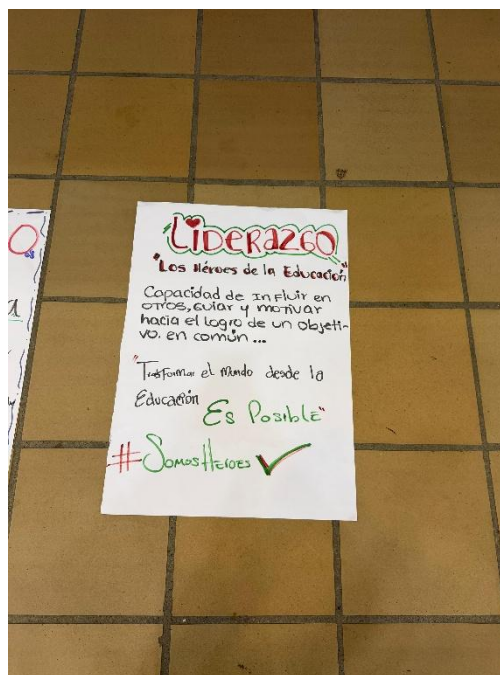 LIDERAZGO
"Los Héroes de la Educación"
Capacidad de InFluir en
otros, Guiar y motivar
hacia el logro de un objeti-
vo. en común ...
"Trasformar el Mundo desde la
Educación
Es Posible"
#SomosHeroes
O
a
y